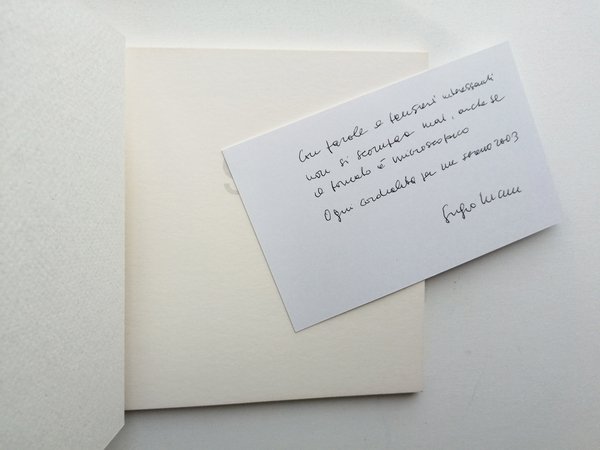 Con parole e pensieri interessanti
non si scompare mai, anche se
il formato è microscopico
Ogni cordialità per un sereno 2003
S